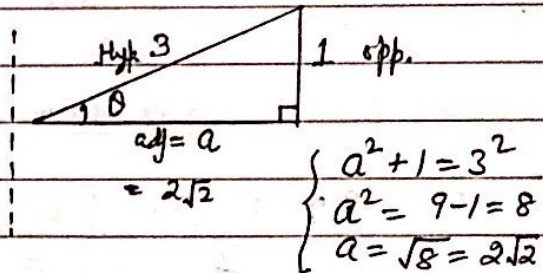 Hyp. 3
1 opp.
θ
adj = a
= 2√2
a² + 1 = 3²
a² = 9-1 = 8
a = √8 = 2√2